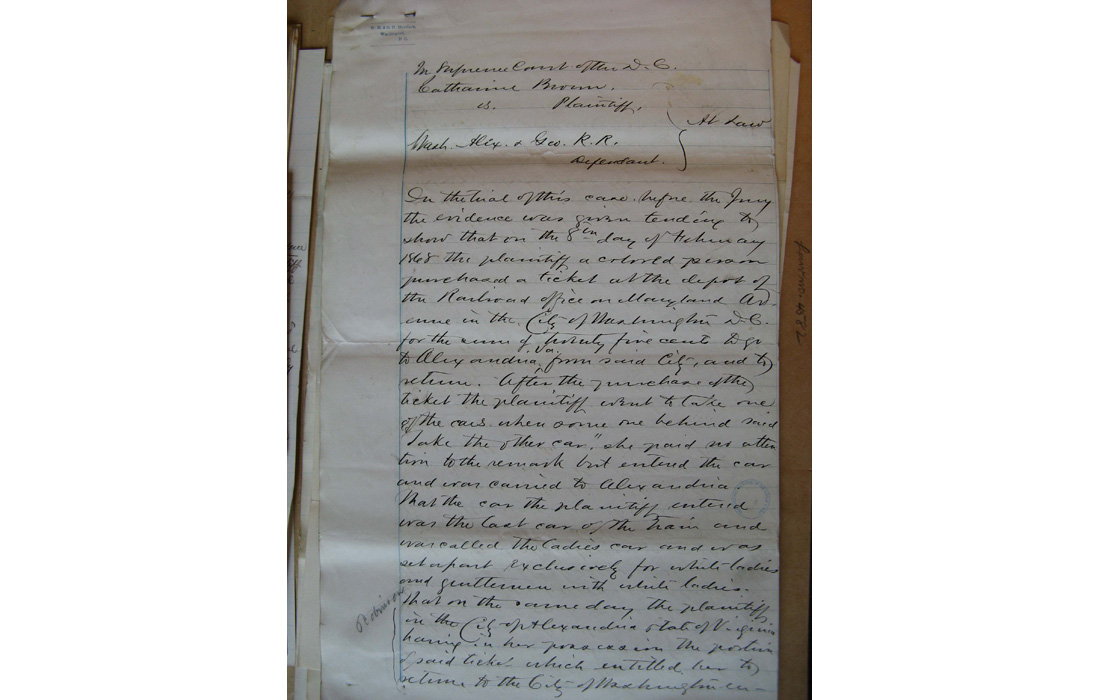 Washington,
D.C.
In Supreme Court of the D.C.
Catharine Brown,
vs. Plaintiff,
At Law
Wash. Alex. & Geo. R.R.
Defendant.
On the trial of this case before the Jury
the evidence was given tending to
show that on the 8th day of February
1868 the plaintiff a colored person
purchased a ticket at the depot of
the Railroad office on Maryland Av-
enue in the City of Washington D.C.
for the sum of twenty five cents to go
to Alexandria, Va. from said City, and to
return. After the purchase of the
ticket the plaintiff went to take one
of the cars when some one behind said
"Take the other car," she paid no atten
tion to the remark but entered the car
and was carried to Alexandria.
That the car the plaintiff entered
was the last car of the train and
was called the ladies car and was
set apart exclusively for white ladies
and gentlemen with white ladies.
That on the same day the plaintiff
in the City of Alexandria State of Virginia
having in her possession the portion
of said ticket which entitled her to
return to the City of Washington en-
Robinson